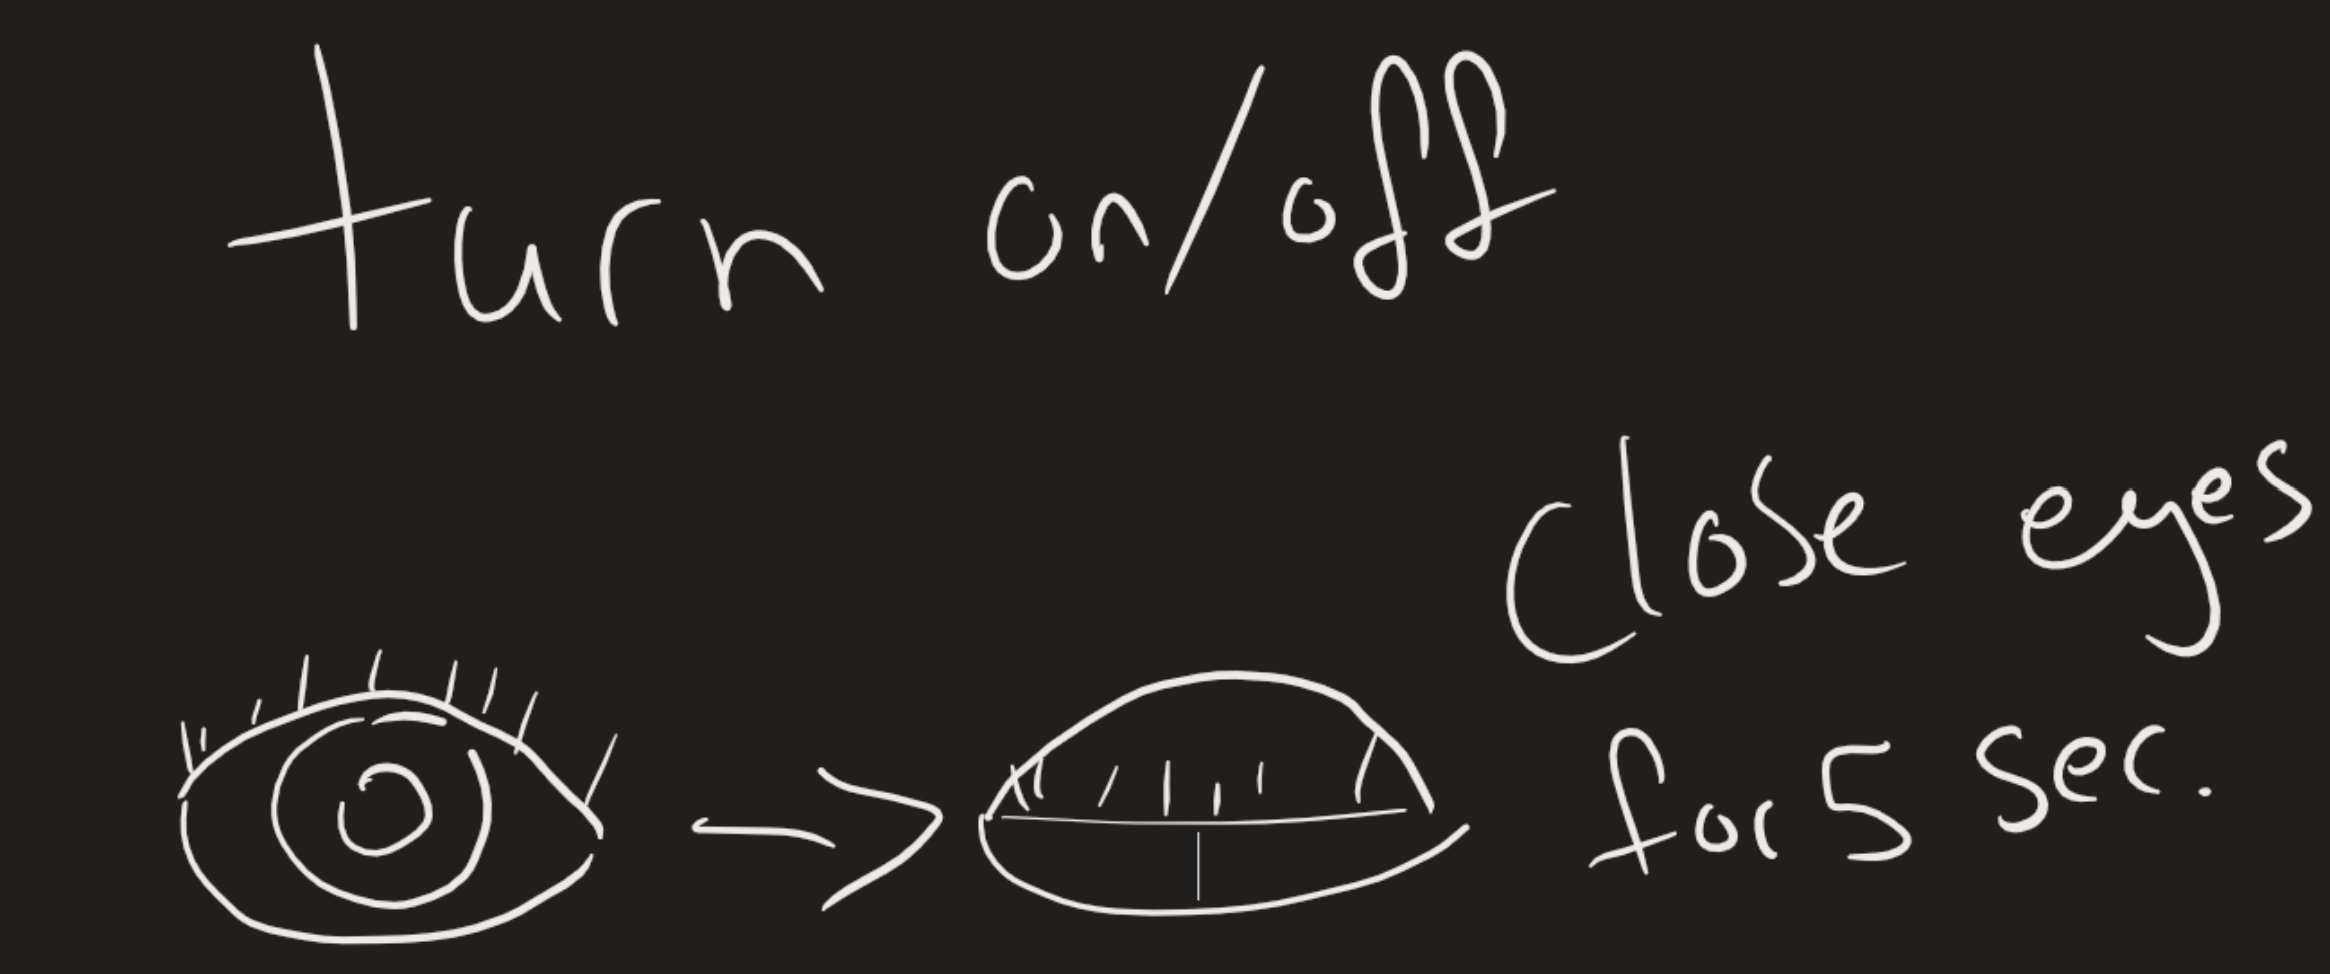 turn on/off
close eyes
for 5 sec.